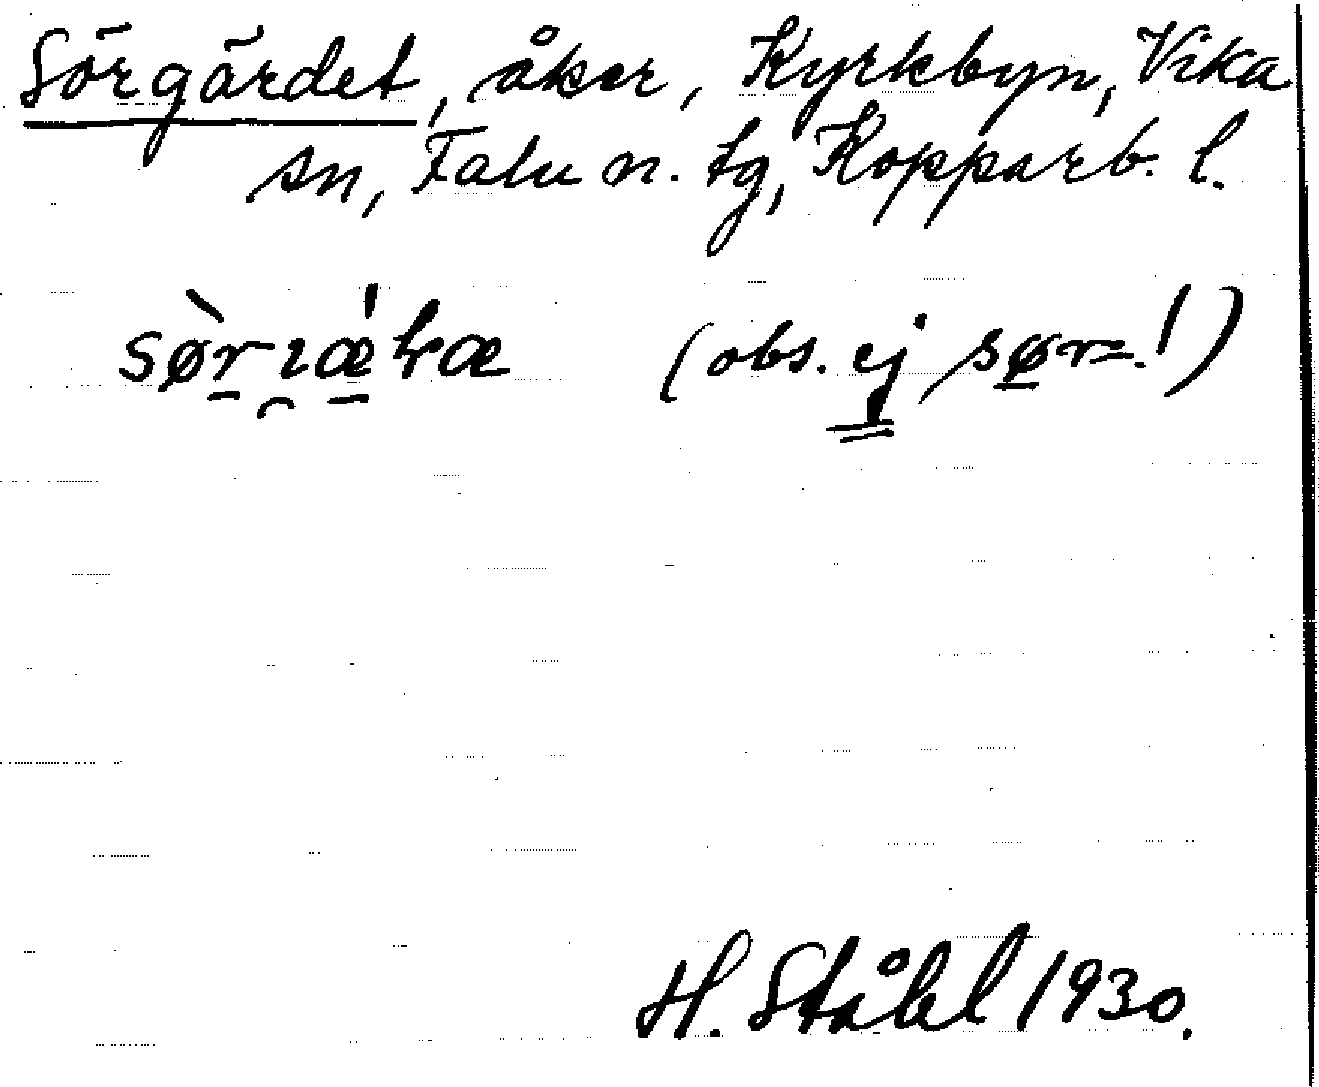 Sörgärdet, åker, Kyrkbyn, Vika
sn, Falu n. tg, Kopparb. l.
(obs. ej sør-!)
H. Ståhl 1930.